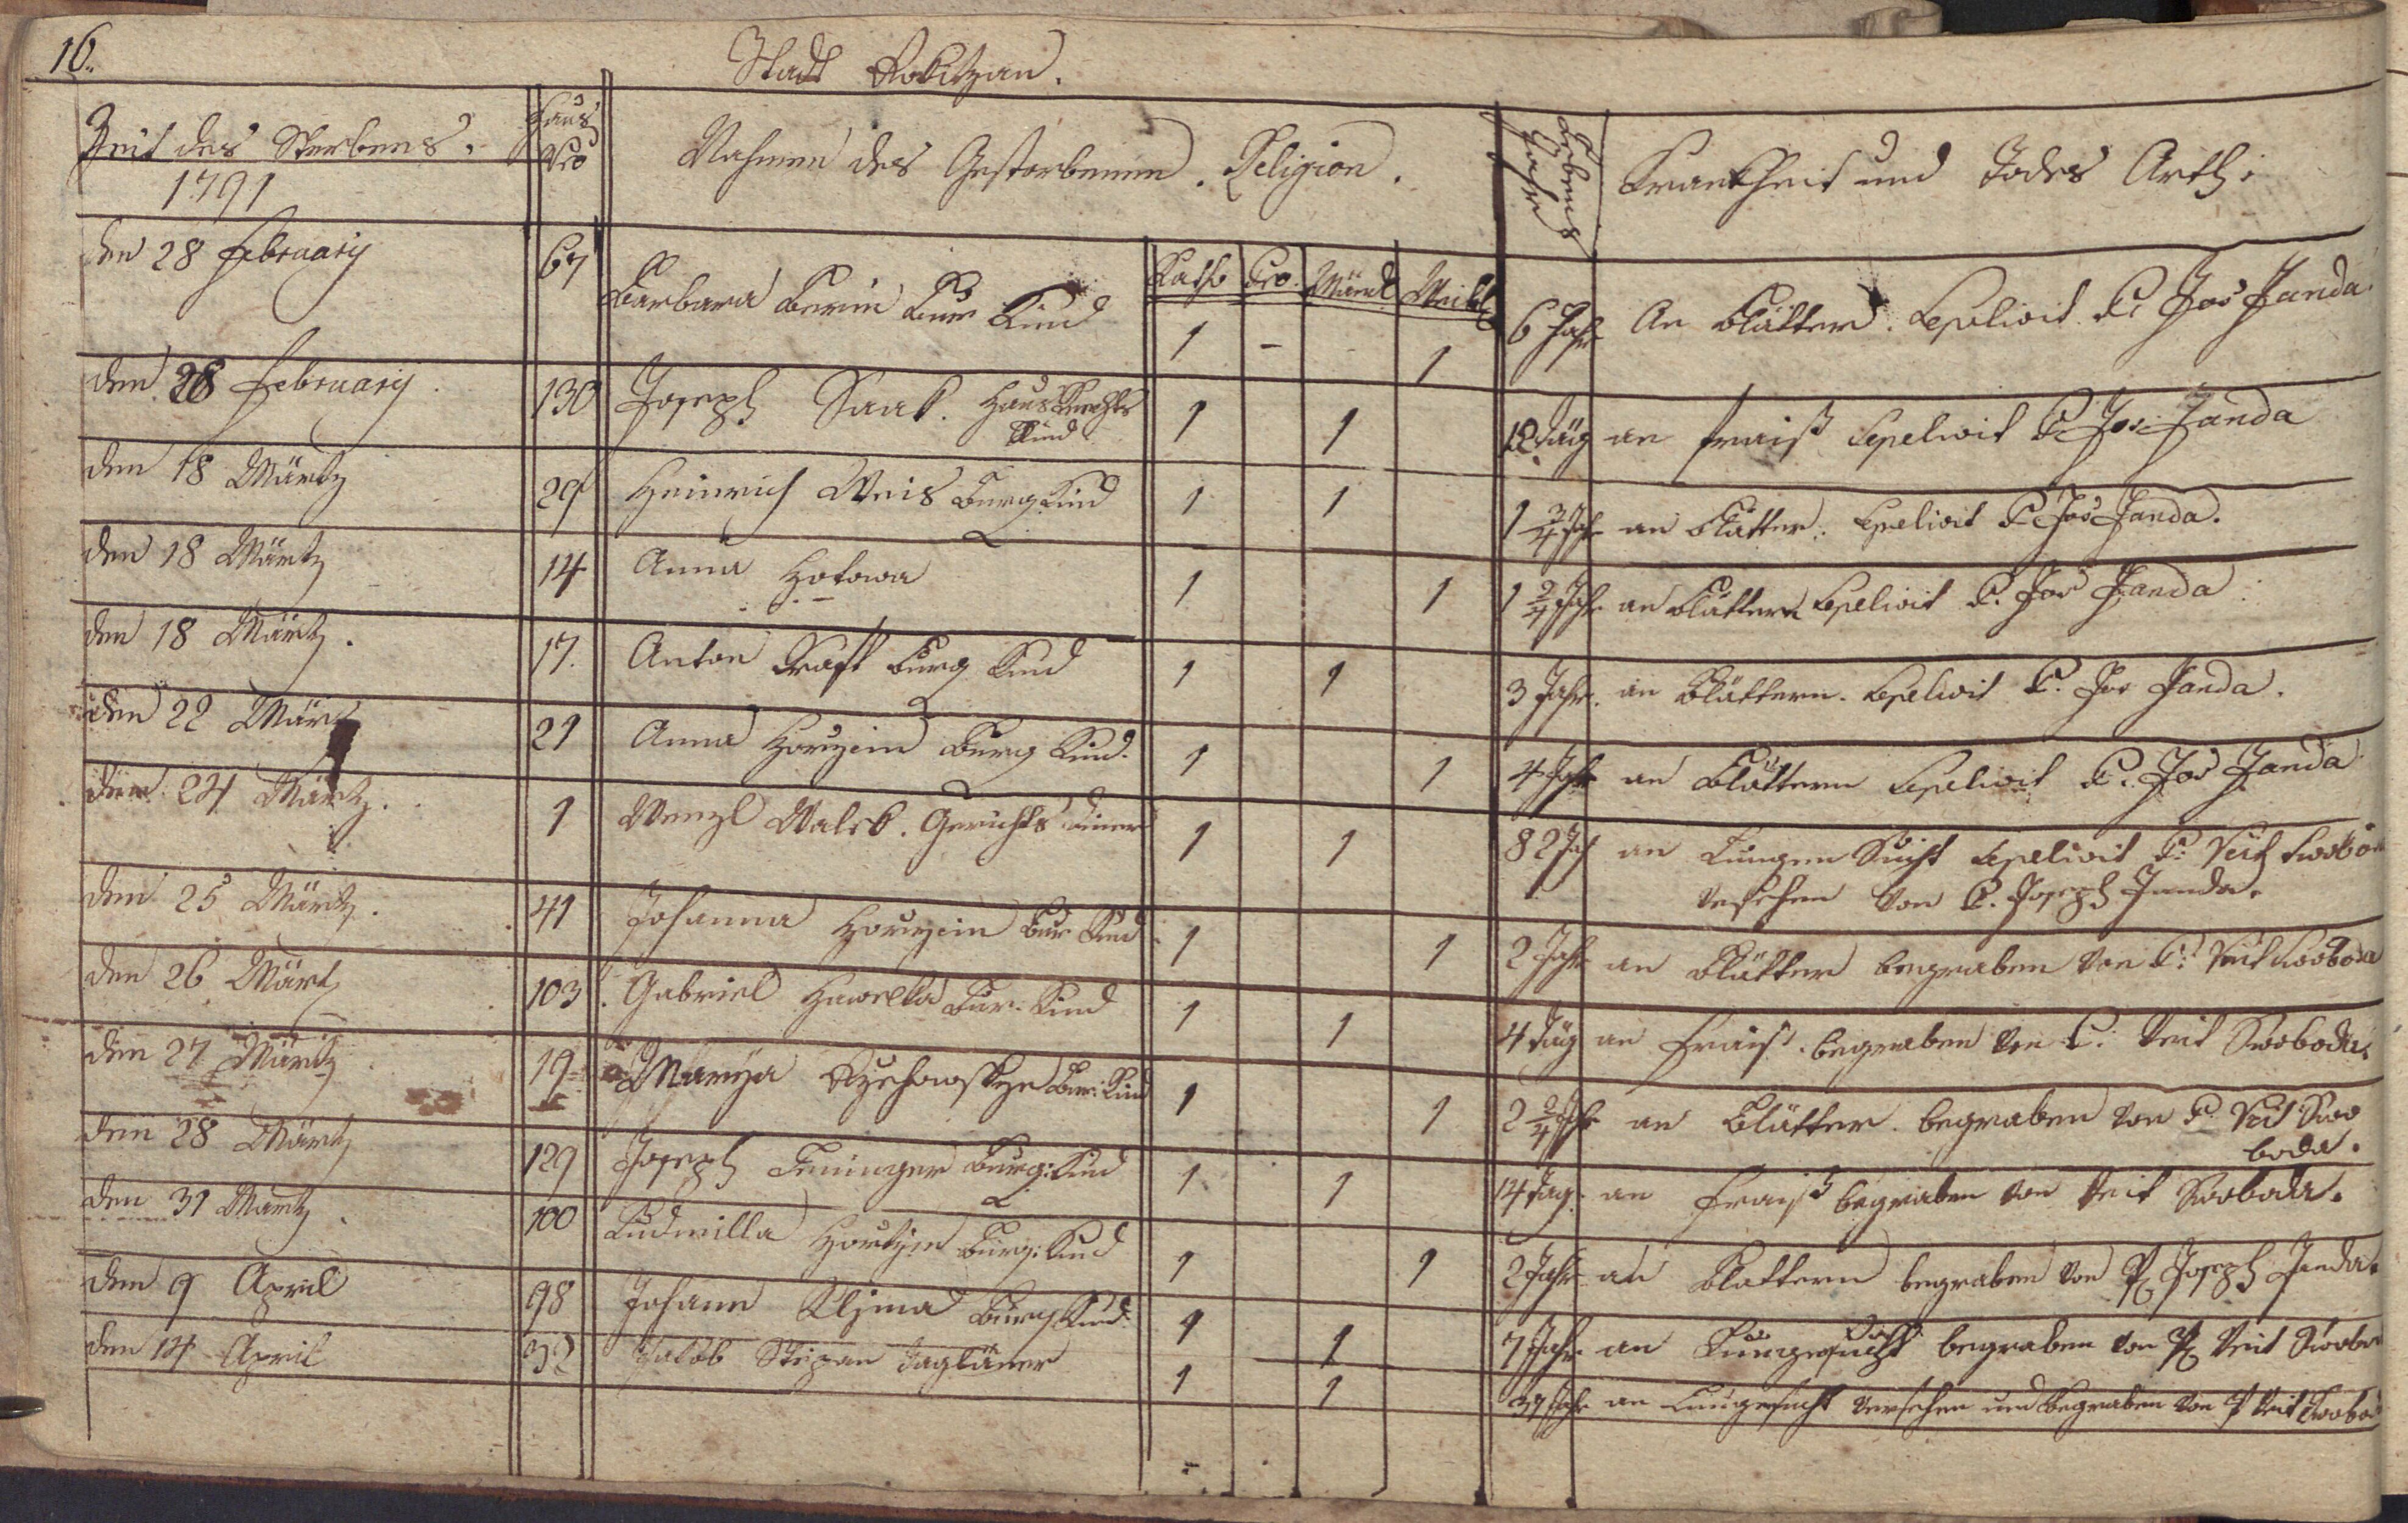 16.
Stadt Rokitzan.
Zeit des Sterbens. Haus Nro Nahmen des Gestorbenen. Religion. Lebens Jahr Krankheit und Todes Arth.
1791
Kath Pro. Mänl Weibl
den 28 February 67 Barbara Bur Kind 1 - 1 6 Jahr An Blätter. Sepelivit P. Jos Janda
den 28 February. 130 Joseph Haus Knechts 1 1 12 Täg an frais Sepelivit P. Jos. Janda
Kind
den 18 Märtz 29 Heinrich Weis Burg Kind 1 1 1 3/4 Jahr an Blätter. Sepelivit P. Jos Janda.
den 18 Märtz 14 Anna Hotowa 1 1 1 2/4 Jahr an Blättern Sepelivit P. Jos Janda
den 18 Märtz. 17. Anton Kraft Burg Kind 1 1 3 Jahr. an Blättern. Sepelivit P. Jos Janda.
den 22 Märtz 21 Anna Horzein Burg Kind. 1 1 4 Jahr an Blättern Sepelivit P. Jos Janda
den 24 Märtz. 1 Wenzl Gerichts diener 1 1 82 Jah an Lungen Sucht Sepelivit P. Veit Swobod
versehen von P. Joseph Janda.
den 25 Märtz. 41 Johanna Horzein Bur Kind 1 1 2 Jahr an Blätter begraben von P. Veit Swoboda
den 26 Märtz 103. Gabriel Hawelka Bur. Kind 1 1 4 Täg an frais. begraben von P. Veit Swoboda.
den 27 Märtz 19 Marya Bur: Kind 1 1 2 2/4 Jahr an Blätter. begraben von P. Veit Swo
boda.
den 28 Märtz 129 Joseph Burg: Kind 1 1 14 Tag. an frais begraben von Veit Swoboda.
den 31 Martz. 100 Ludmilla Burg: Kind 1 1 2 Jahr an Blattern begraben von P Joseph Janda.
den 9 April 98 Johann Klima Burg Kind 1 1 7 Jahr an Lungesucht begraben von P Veit Swobo
den 14 April 32 Jakob Stepan Taglöner 1 1 37 Jahr an Lungesucht versehen und Begraben von P Veit Swobo